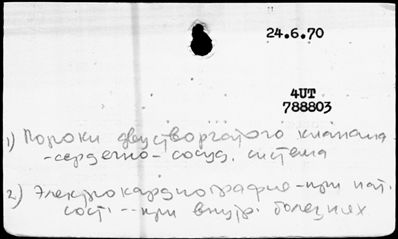 24.6.70
4UT
788803
1) Пороки двустворчатого клапана
- сердечно - сосуд. система
2) Электрокардиография - при пат.
сост. -- при внутр. болезнях